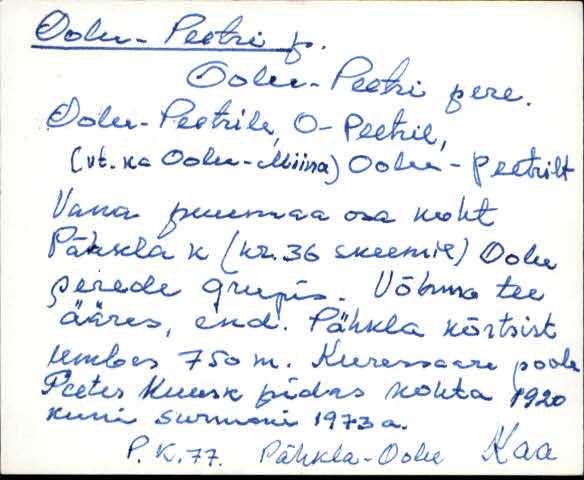 Oolu-Peetri p.
Oolu-Peetri pere.
Oolu-Peetrile, O-Peetril,
(vt. ka Oolu-Miina) Oolu-Peetrilt
Vana puumaa osa koht
Pähkla k (nr. 36 skeemil) Oolu
perede grupis. Võhma tee
ääres, end. Pähkla kõrtsist
umbes 750 m. Kuressaare poole
Peeter Kuusk pidas kohta 1920
kuni surmani 1973 a.
P. K. 77. Pähkla-Oolu Kaa